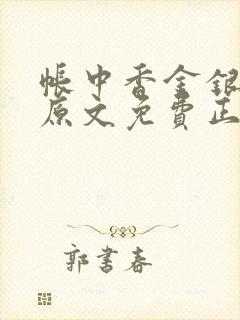 帐中香金银
原文免费正
郭书春